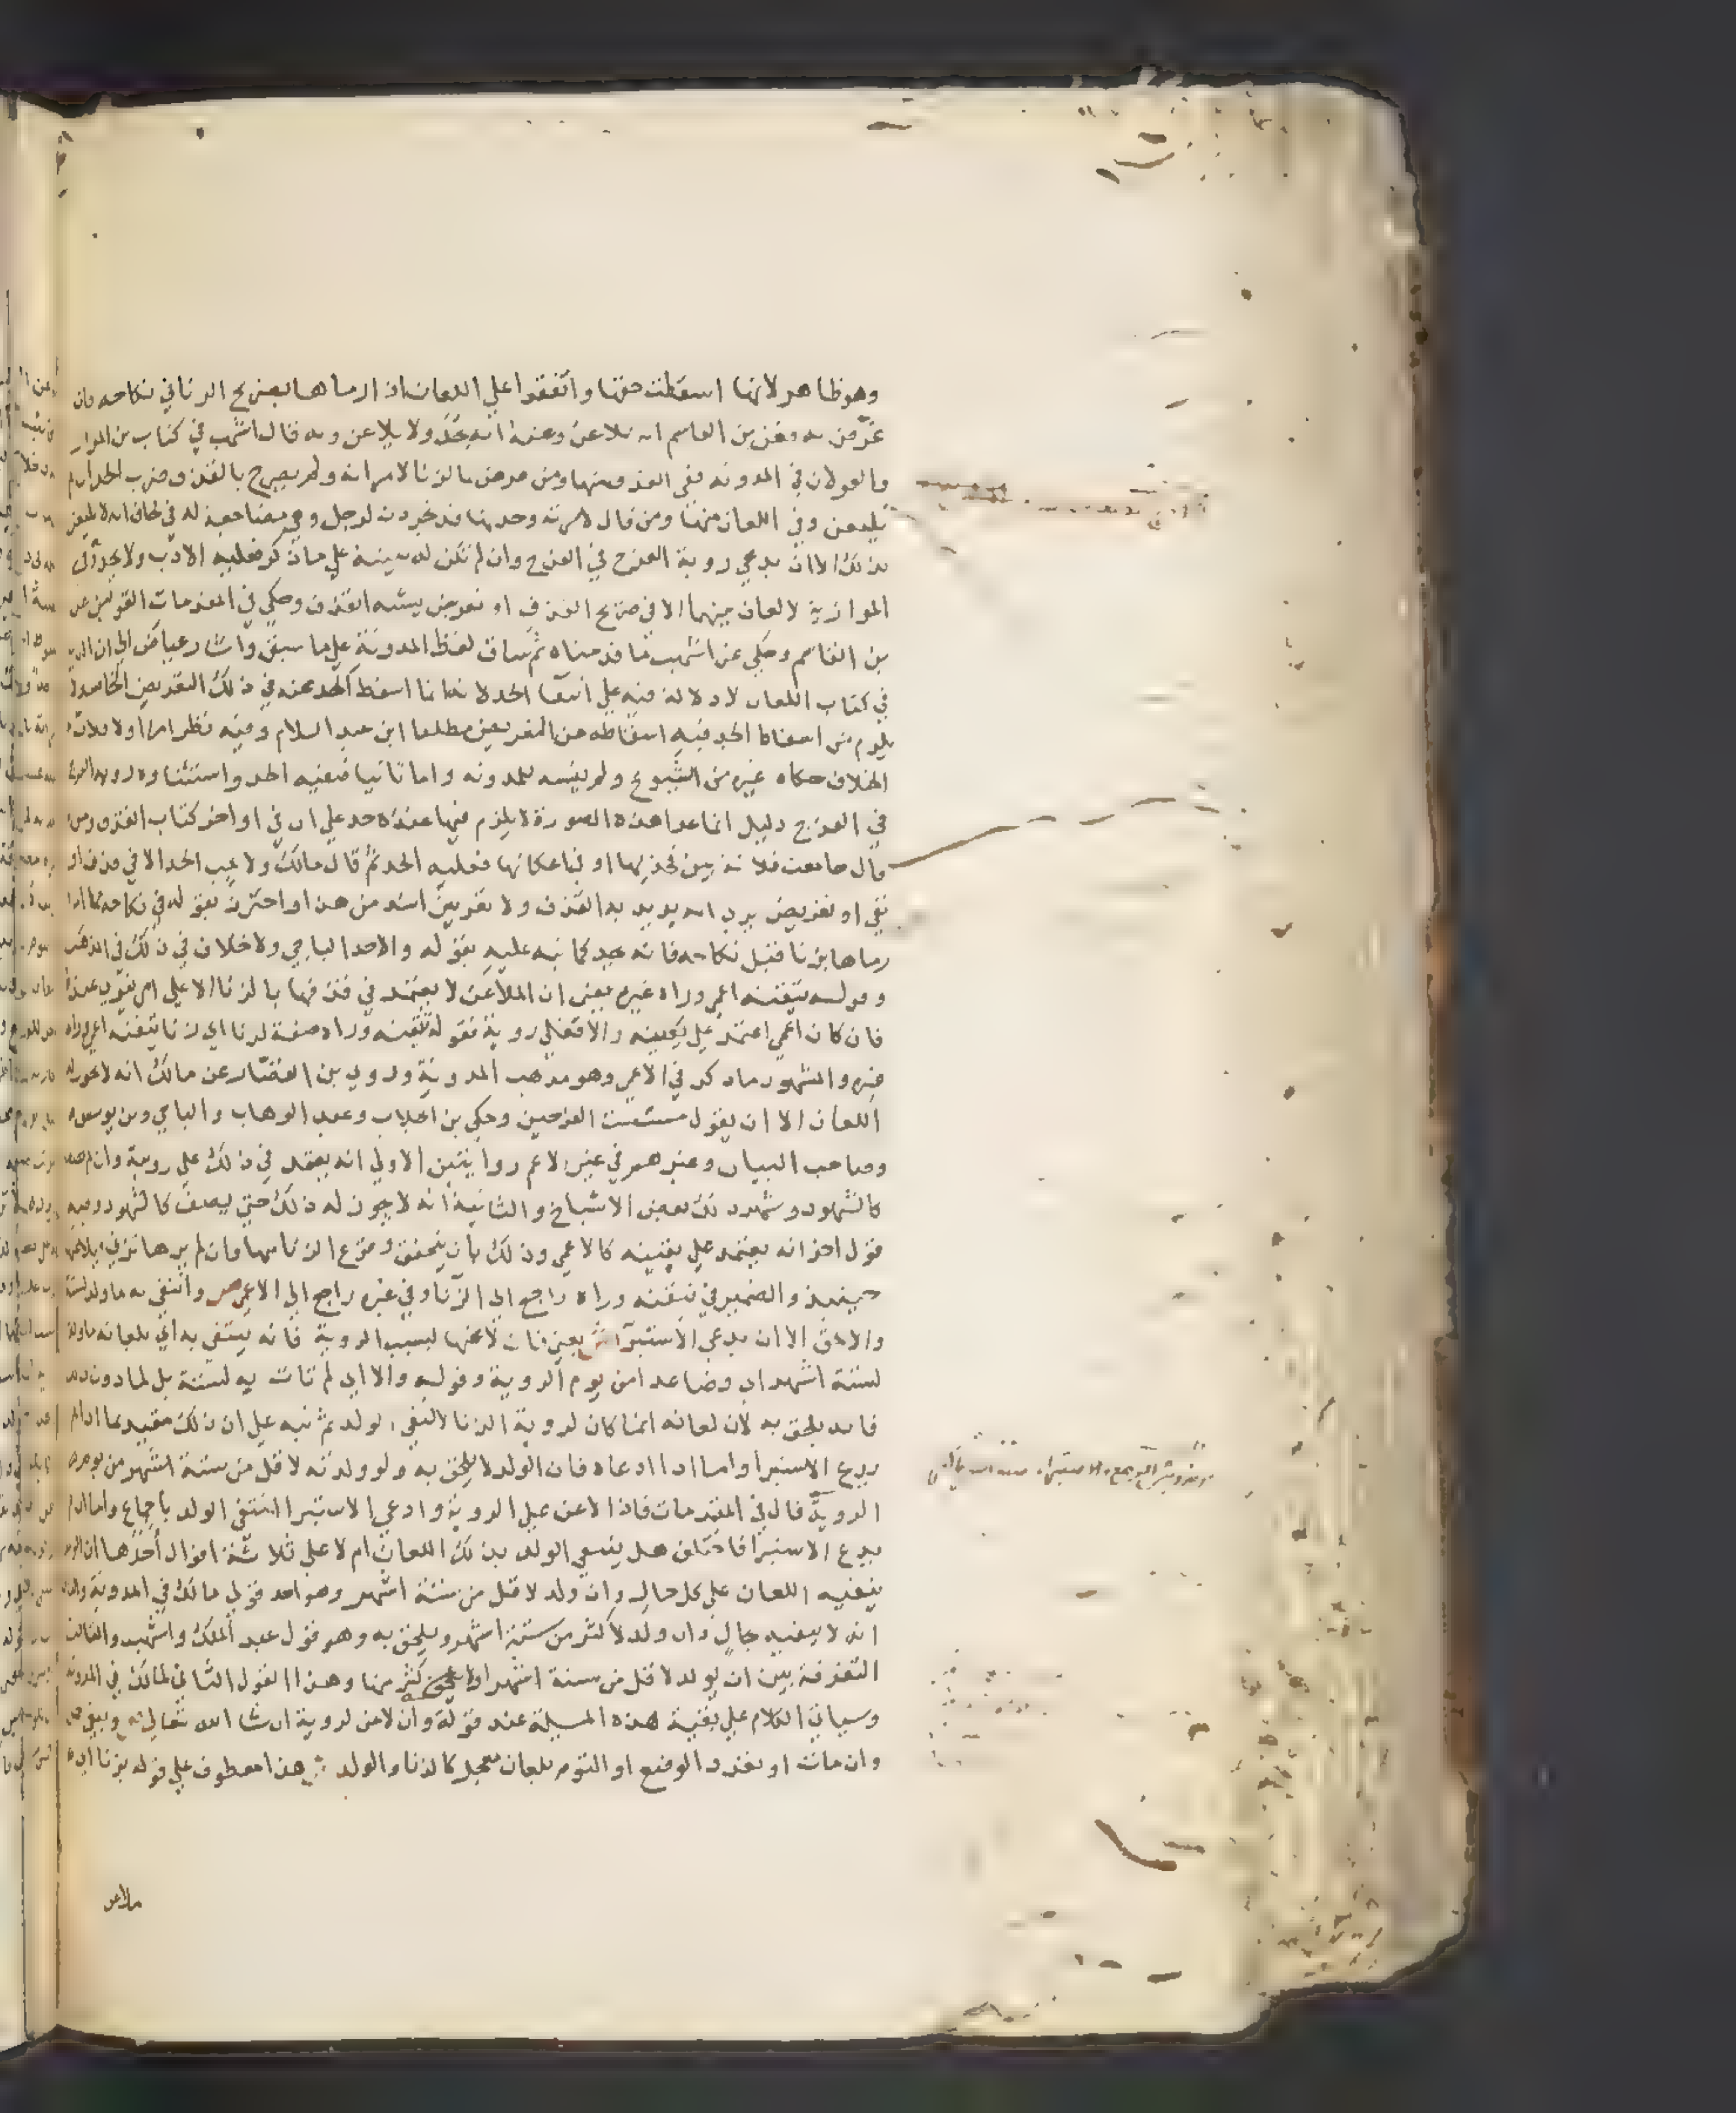 وهو ظاهر لانها اسقطت حقها واتفقوا علي اللعان اذا رماها بصريح الزنا في نكاحه فان
عرّض به فعن بن القاسم انه يلاعن وعنه انه يحد ولا يلاعن وبه قال اشهب في كتاب بن المواز
والقولان في المدونه ففي القذف منها ومن عرض بالزنا لامراته ولم يصرح بالقذف ضرب الحد ان لم
يلتعن وفي اللعان منها ومن قال لامرته وجدتها قد تجردت لرجل وهي مضاجعة له في لحاف انه لا يلتعن
بذلك الا ان يدعي روية الفرج في الفرج وان لم تكن له بينة علي ما ذكر فعليه الادب ولا يحد وفي
الموازية لا لعان بينهما الا في صريح القذف او تعريض يشبه القذف وحكي في المقدمات القولين عن
بن القاسم وحكي عن اشهب ما قدمناه ثم ساق لفظ المدونة علي ما سبق واشار عياض الي ان الذي
في كتاب اللعان لا دلالة فيه علي انتفا الحد لانه انما اسقط الحد عنه في ذلك التعريض الخاص ولا
يلزم من اسقاط الحد فيه اسقاطه من التعريض مطلقا ابن عبد السلام وفيه نظر اما اولا فلان
الخلاف حكاه غيره من الشيوخ ولم ينسبه للمدونه واما ثانيا فنفيه الحد واستثناوه روية الفرج
في الفرج دليل انما عدا هذه الصورة لا يلزم فيها عنده حد علي ان في اواخر كتاب القذف ومن
قال جامعت فلانة بين فخذيها او في اعكانها فعليه الحد ثم قال مالك ولا يجب الحد الا في قذف او
نفي او تعريض يري انه يريد به القذف ولا تعريض اشد من هذا واحترز بقوله في نكاحه مما اذا
رماها بزنا قبل نكاحه فانه يحد كما نبه عليه بقوله والا حد الباجي ولا خلاف في ذلك في المذهب
وقوله تيقنه اعمي وراه غيره يعني ان الملاعن لا يعتمد في قذفها بالزنا الا علي امر يقوي عنده
فان كان اعمي اعتمد علي يقينه والا فعلي روية فقوله تيقنه وراه صفة لزنا اي زنا تيقنه اعمي وراه
غيره والمشهور ما ذكر في الاعمي وهو مذهب المدونة وروي بن القصار عن مالك انه لا يجوز له
اللعان الا ان يقول مسست الفرجين وحكي بن الجلاب وعبد الوهاب والباجي وبن يونس
وصاحب البيان وغيرهم في غير الاعمي روايتين الاولي انه يعتمد في ذلك علي روية وان لم يصف
كالشهود وشهرت ذلك بعض الاشياخ والثانية انه لا يجوز له ذلك حتي يصف كالشهود وفيه
قول اخر انه يعتمد علي يقينه كالاعمي وذلك بان يتحقق وقوع الزنا منها وان لم يرها تزني فيلاعنها
حينيذ والضمير في تيقنه وراه راجع الي الزنا وفي غيره راجع الي الاعمي ص وانتفي به ما ولد لستة
والا لحق الا ان يدعي الاستبرا ش يعني فان لاعنها لسبب الروية فانه ينتفي به اي بلعانه ما ولد
لستة اشهر اي فصاعدا من يوم الروية وقوله والا اي لم تات به لستة بل لما دون ذلك
فانه يلحق به لان لعانه انما كان لروية الزنا لا لنفي الولد ثم نبه علي ان ذلك مقيد بما اذا لم
يدع الاستبرا واما اذا ادعاه فان الولد لا يلحق به ولو ولدته لاقل من ستة اشهر من يوم
الروية قال في المقدمات فاذا لاعن علي الروية وادعي الاستبرا انتفي الولد باجماع واما ان لم
يدع الاستبرا فاختلف هل ينتفي الولد بذلك اللعان ام لا علي ثلاثة اقوال احدها ان الولد
ينفيه اللعان علي كل حال وان ولد لاقل من ستة اشهر وهو احد قولي مالك في المدونة والثاني
انه لا ينفيه بحال وان ولد لاكثر من ستة اشهر ويلحق به وهو قول عبد الملك واشهب والثالث
التفرقة بين ان يولد لاقل من ستة اشهر او لاكثر منها وهذا القول الثاني لمالك في المدونة
وسياتي الكلام علي بقية هذه المسيلة عند قوله وان لاعن لروية ان شا الله تعالي ص وبنفي حمل
وان مات او تعدد الوضع او التوم بلعان معجل كالزنا والولد ش هذا معطوف علي قوله بزنا اي